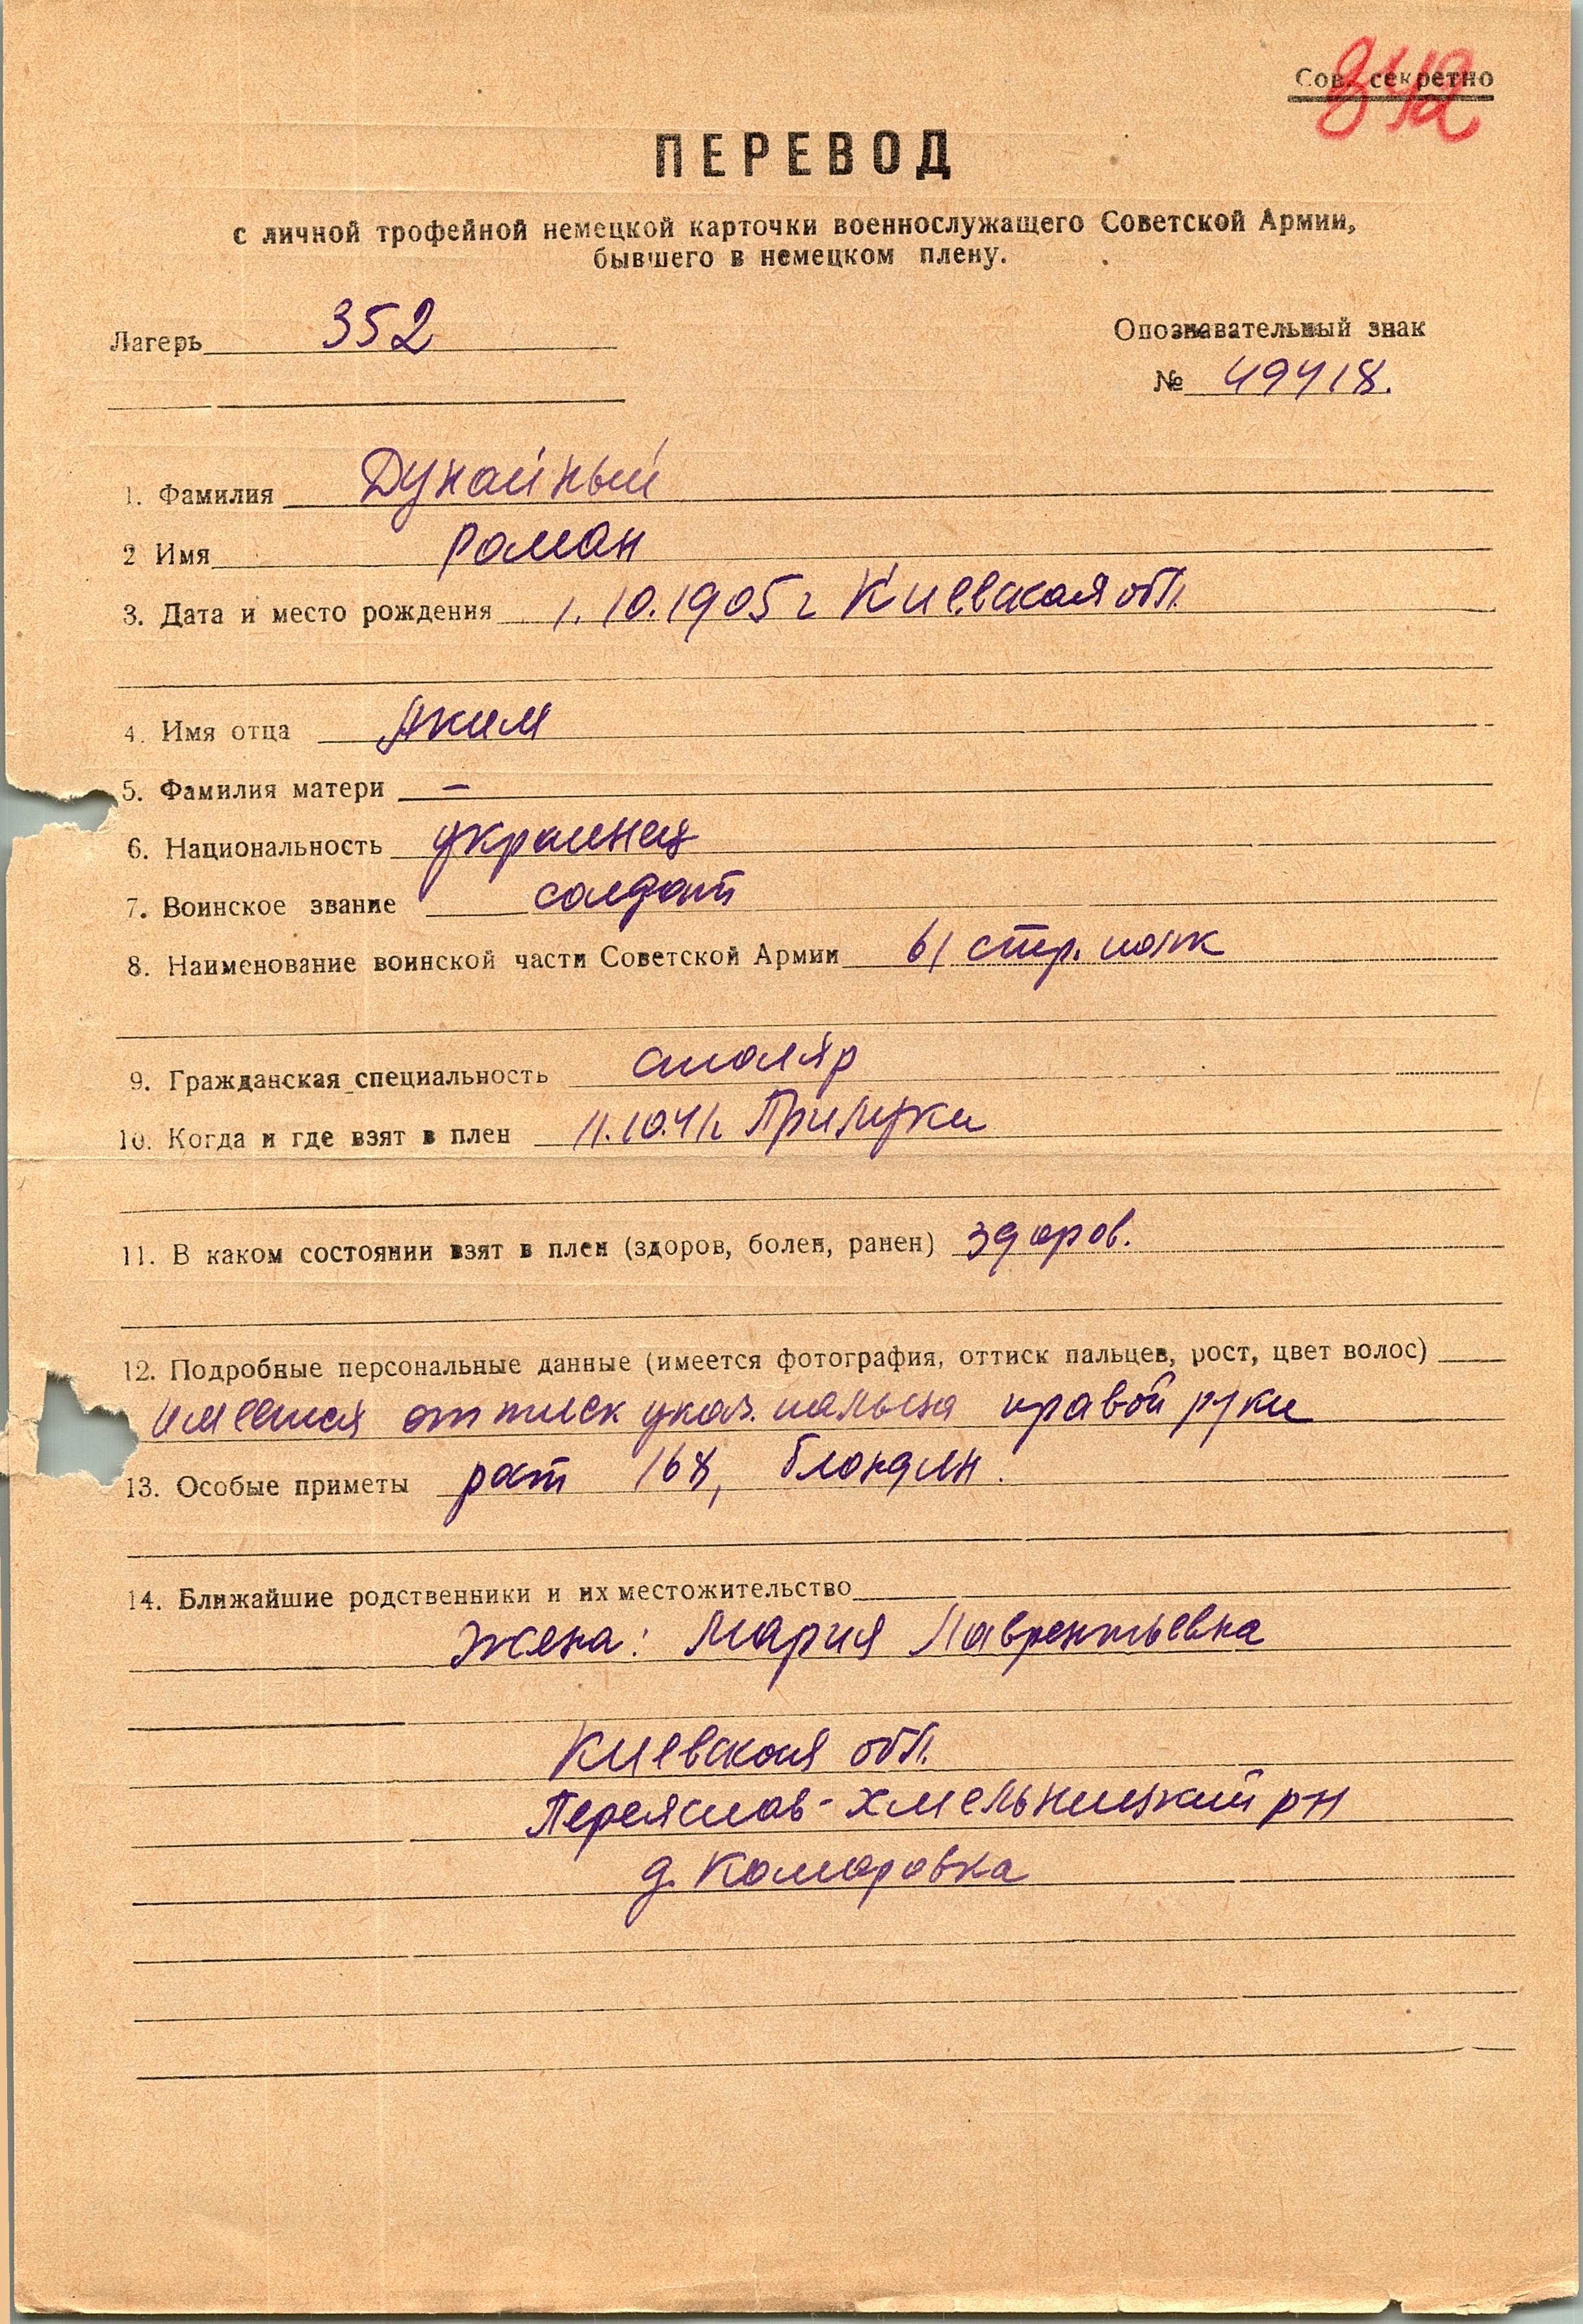 Сов. секретно
342
ПЕРЕВОД
с личной трофейной немецкой карточки военнослужащего Советской Армии,
бывшего в немецком плену.
Лагерь 352
Опознавательный знак
№ 49418.
1. Фамилия Дунайный
2 Имя Роман
3. Дата и место рождения 1.10.1905 г Киевская обл.
4. Имя отца Аким
5. Фамилия матери —
6. Национальность украинец
7. Воинское звание солдат
8. Наименование воинской части Советской Армии 61 стр. полк
9. Гражданская специальность столяр
10. Когда и где взят в плен 11.10.41г. Прилуки
11. В каком состоянии взят в плен (здоров, болен, ранен) здоров.
12. Подробные персональные данные (имеется фотография, оттиск пальцев, рост, цвет волос)
имеется оттиск указ. пальца правой руки
13. Особые приметы рост 168, блондин.
14. Ближайшие родственники и их местожительство
Жена: Мария Лаврентьевна
Киевская обл.
Переяслав-Хмельницкий рн
д. Комаровка